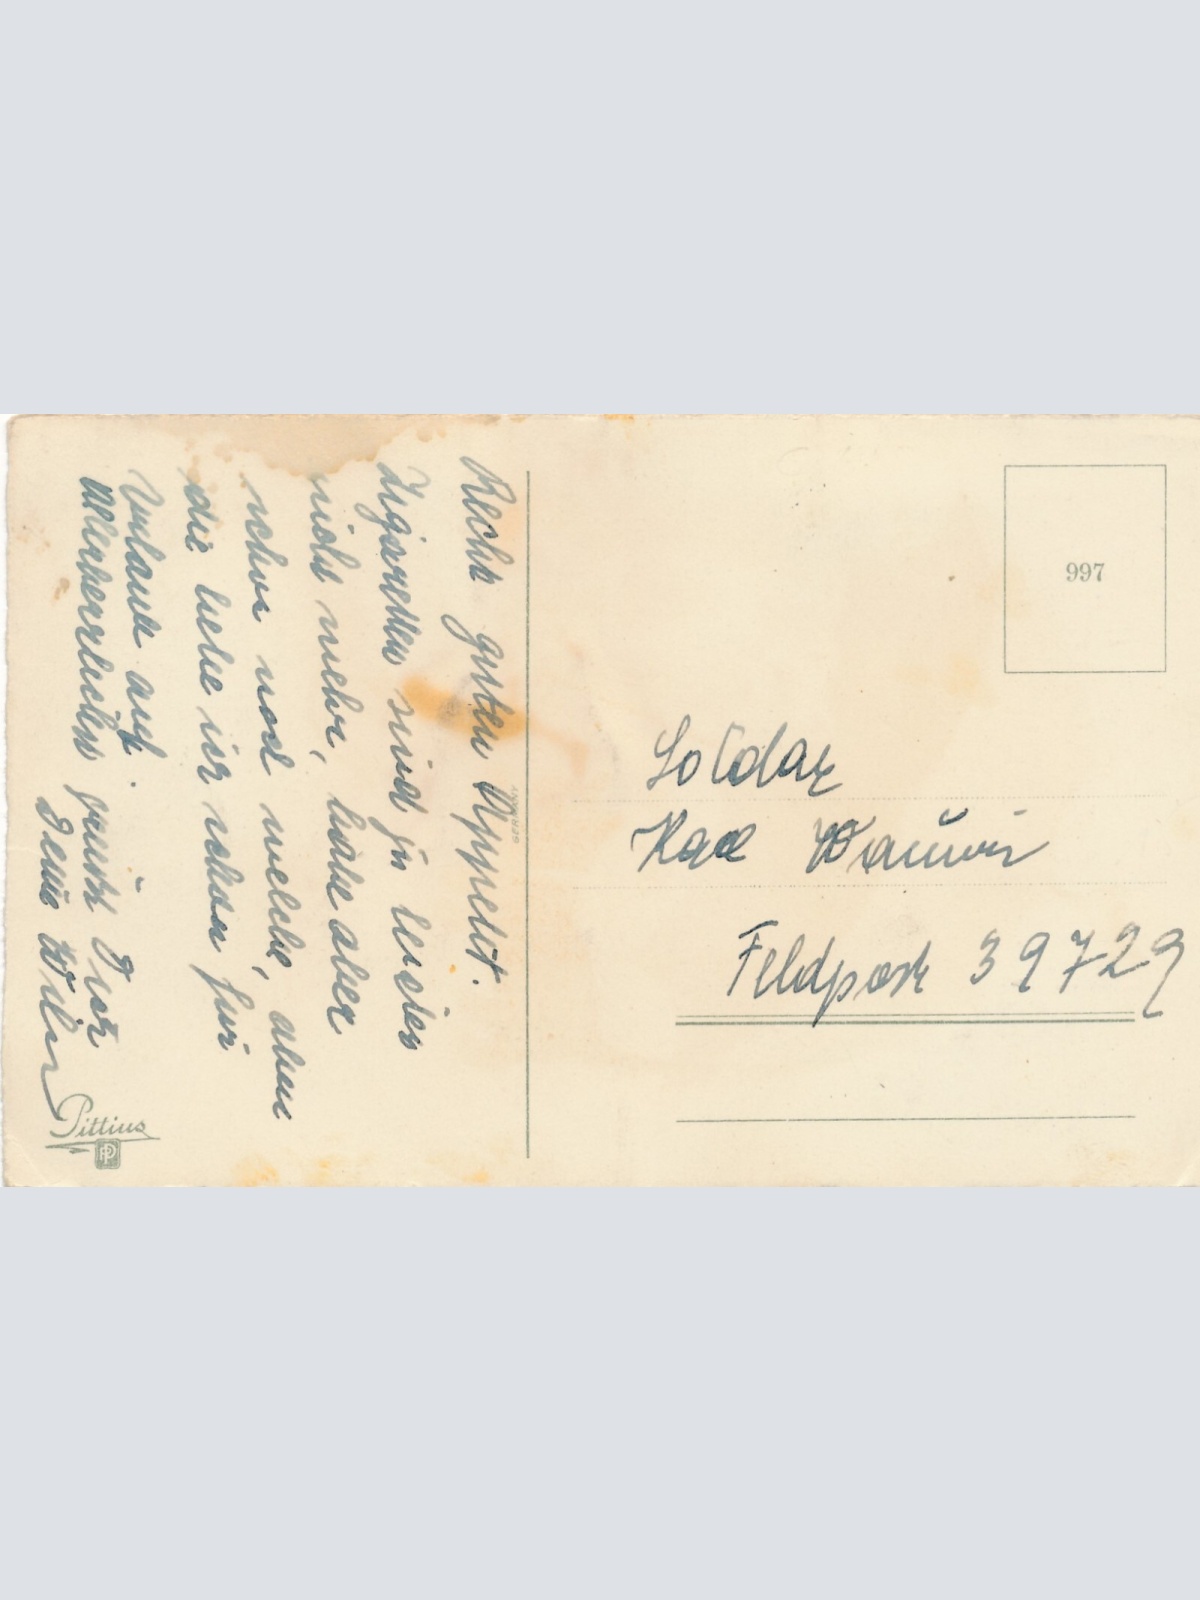 Recht guten Appetit.
Zigaretten sind ja leider
nicht mehr, habe aber
schon noch welche, aber
die hebe ich schon für
Urlaub auf.
Allerherzlichst grüsst Dich
Deine
Pittius
PP
997
Soldat
Karl
Feldpost 39729